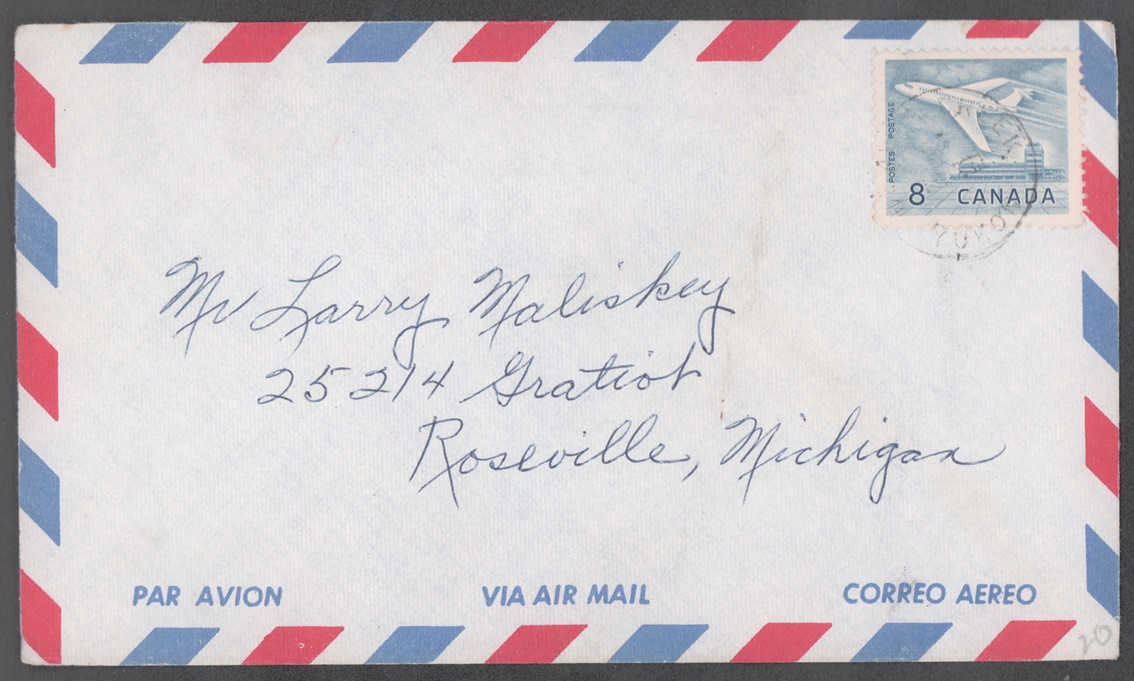 POSTES POSTAGE
8 CANADA
YUKON
Mr Larry Maliskey
25214 Gratiot
Roseville, Michigan
PAR AVION VIA AIR MAIL CORREO AEREO
20